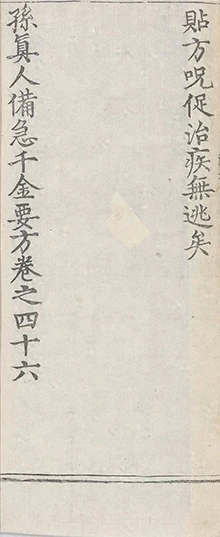 貼方呪促治疾無逃矣
孫眞人備急千金要方卷之四十六